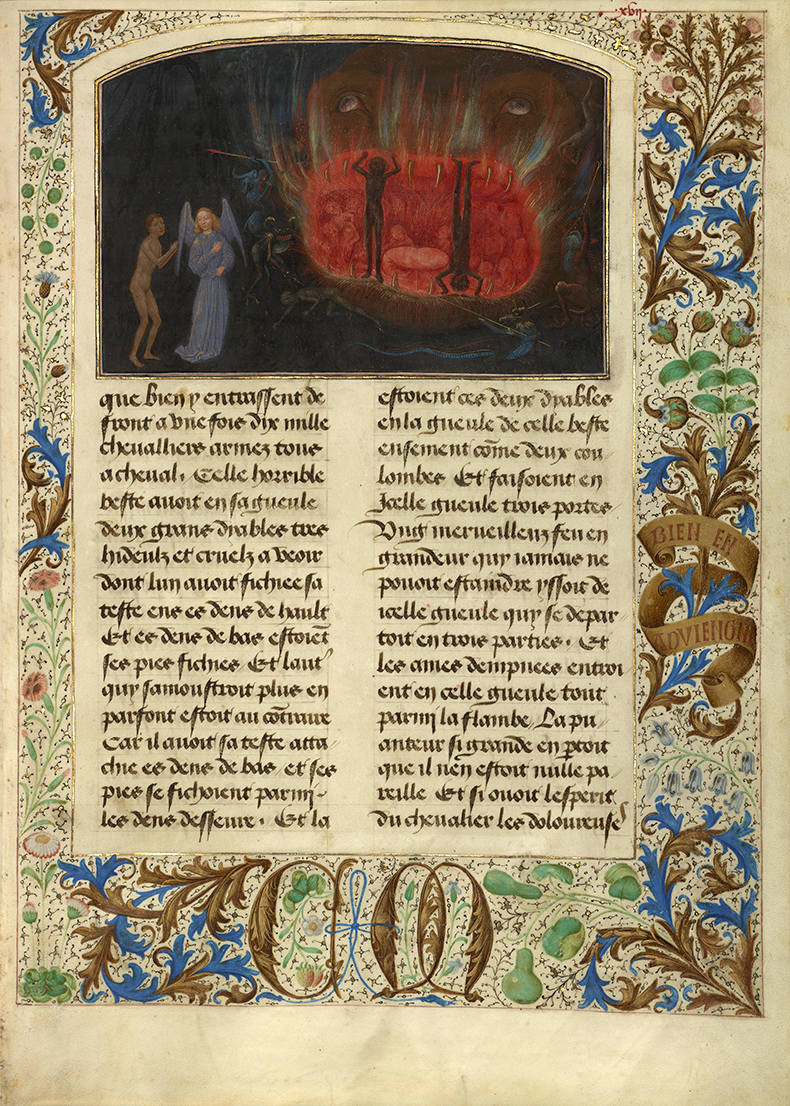 xvii
que bien y entrassent de
front a vne fois dix mille
chevalliers armez tous
a cheval. Celle horrible
beste auoit en sa gueule
deux grans dyables tres
hideulz et cruelz a veoir
dont lun auoit fichiee sa
teste ens es dens de hault
Et es dens de bas estoiēt
ses pies fichies. Et laut'
quy samoustroit plus en
parfont estoit au cōtraire
Car il auoit sa teste atta
chie es dens de bas et ses
pies se fichoient parmy
les dens desseure. Et la
estoient ces deux dyables
en la gueule de celle beste
ensement cōme deux cou
lombes Et faisoient en
Icelle gueule trois portes
Vng merveilleuz feu en
grandeur quy iamais ne
pouoit estaindre yssoit de
icelle gueule quy se depar
toit en trois parties. Et
les ames dempnees entroi
ent en celle gueule tout
parmi la flambe. La pu
anteur si grande en ꝑtoit
que il nen estoit nulle pa
reille Et si ouoit lesperit
du chevalier les doloureuses
BIEN EN
ADVIENGNE
C M